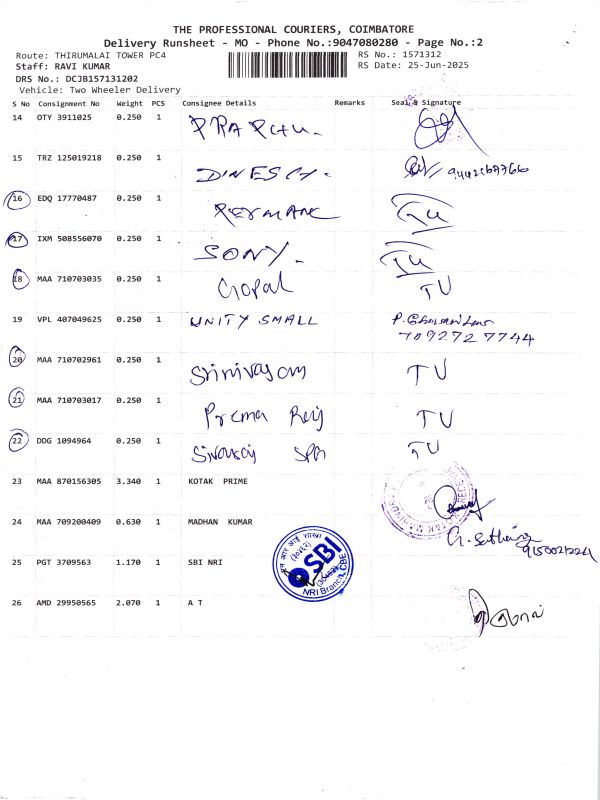 THE PROFESSIONAL COURIERS, COIMBATORE
Delivery Runsheet - MO - Phone No.:9047080280 - Page No.:2
Route: THIRUMALAI TOWER PC4
RS No.: 1571312
Staff: RAVI KUMAR
RS Date: 25-Jun-2025
DRS No.: DCJB157131202
Vehicle: Two Wheeler Delivery
S No Consignment No Weight PCS Consignee Details Remarks Seal & Signature
14 OTY 3911025 0.250 1
15 TRZ 125019218 0.250 1 DINESH.
16 EDQ 17770487 0.250 1
17 IXM 508556070 0.250 1 SONY.
18 MAA 710703035 0.250 1 Gopal TU
19 VPL 407049625 0.250 1 UNITY SMALL
7092727744
20 MAA 710702961 0.250 1 Srinivasan TU
21 MAA 710703017 0.250 1 Prema TU
22 DDG 1094964 0.250 1 TU
23 MAA 870156305 3.340 1 KOTAK PRIME
24 MAA 709200409 0.630 1 MADHAN KUMAR
25 PGT 3709563 1.170 1 SBI NRI
SBI
NRI Branch, CBE
26 AMD 29950565 2.070 1 A T